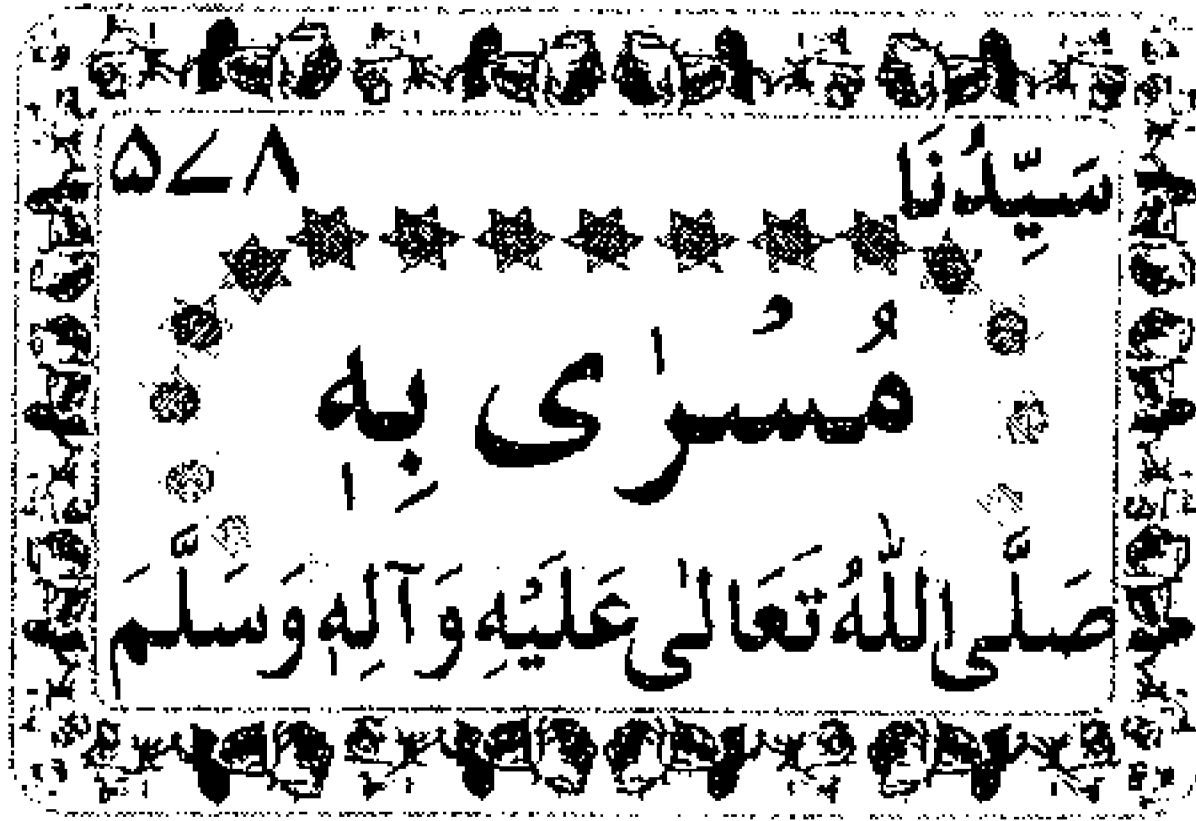 سَيِّدُنَا ۵۷۸
مُسْرٰی بِهٖ
صَلَّی اللّٰهُ تَعَالٰی عَلَيْهِ وَآلِهٖ وَسَلَّمَ